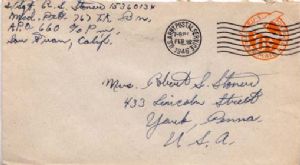 S/Sgt. R. S. Stoner 15360134
Med. Det. 767 Tk. Bn.
A.P.O. 660 % P.M.
San Fran, Calif.
U.S. ARMY POSTAL SERVICE
FEB
1946
Mrs. Robert S. Stoner
433 Lincoln Street
York, Penna
U. S. A.